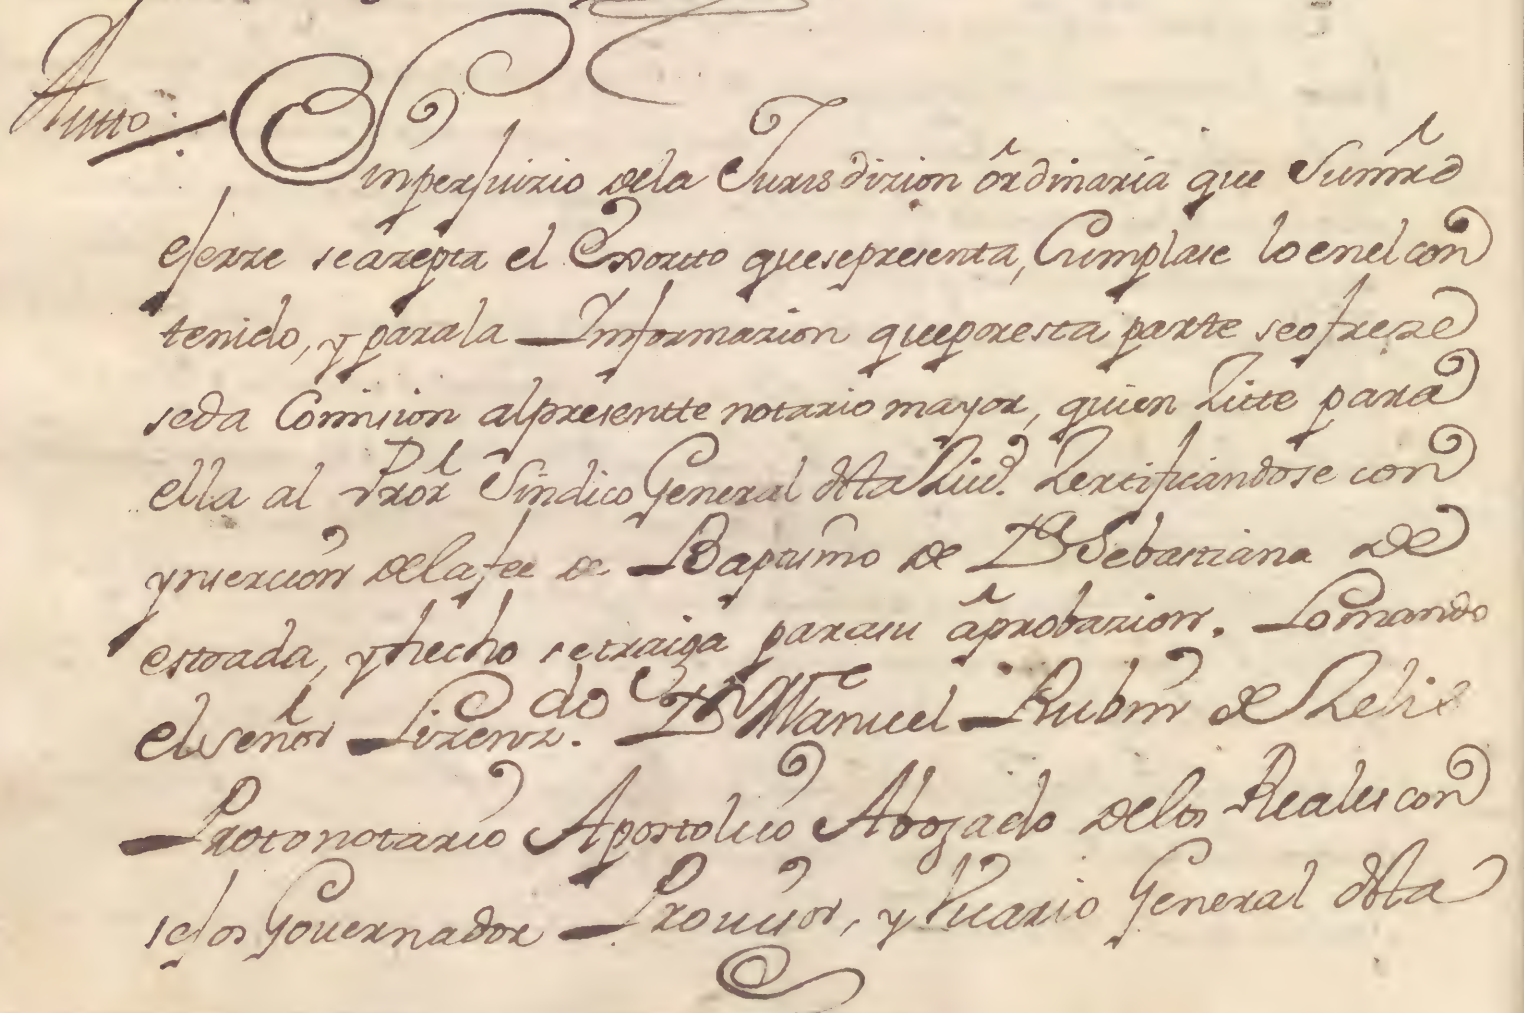 Autto.
Sinperjuizio dela Jurisdizion ordinaria que Sumrd
ejerze seazepta el Exorto quesepresenta, Cumplase loenel con
tenido, y parala Informazion queporesta parte seofreze
seda Comision alpresentte notario mayor, quien Zitte para
ella al Pror. Sindico General dsta Ziud. Zertificandose con
ynsercion delafee de Baptismo de Da. Sebastiana de
estrada, yhecho setraiga parasu aprobazion. Lo mando
elseñor Lizenz.do Dn Manuel Rubin de Zelis
Protonotario Apostolico Abogado delos Reales con
sejos Governador Provisor, y Vicario General dsta